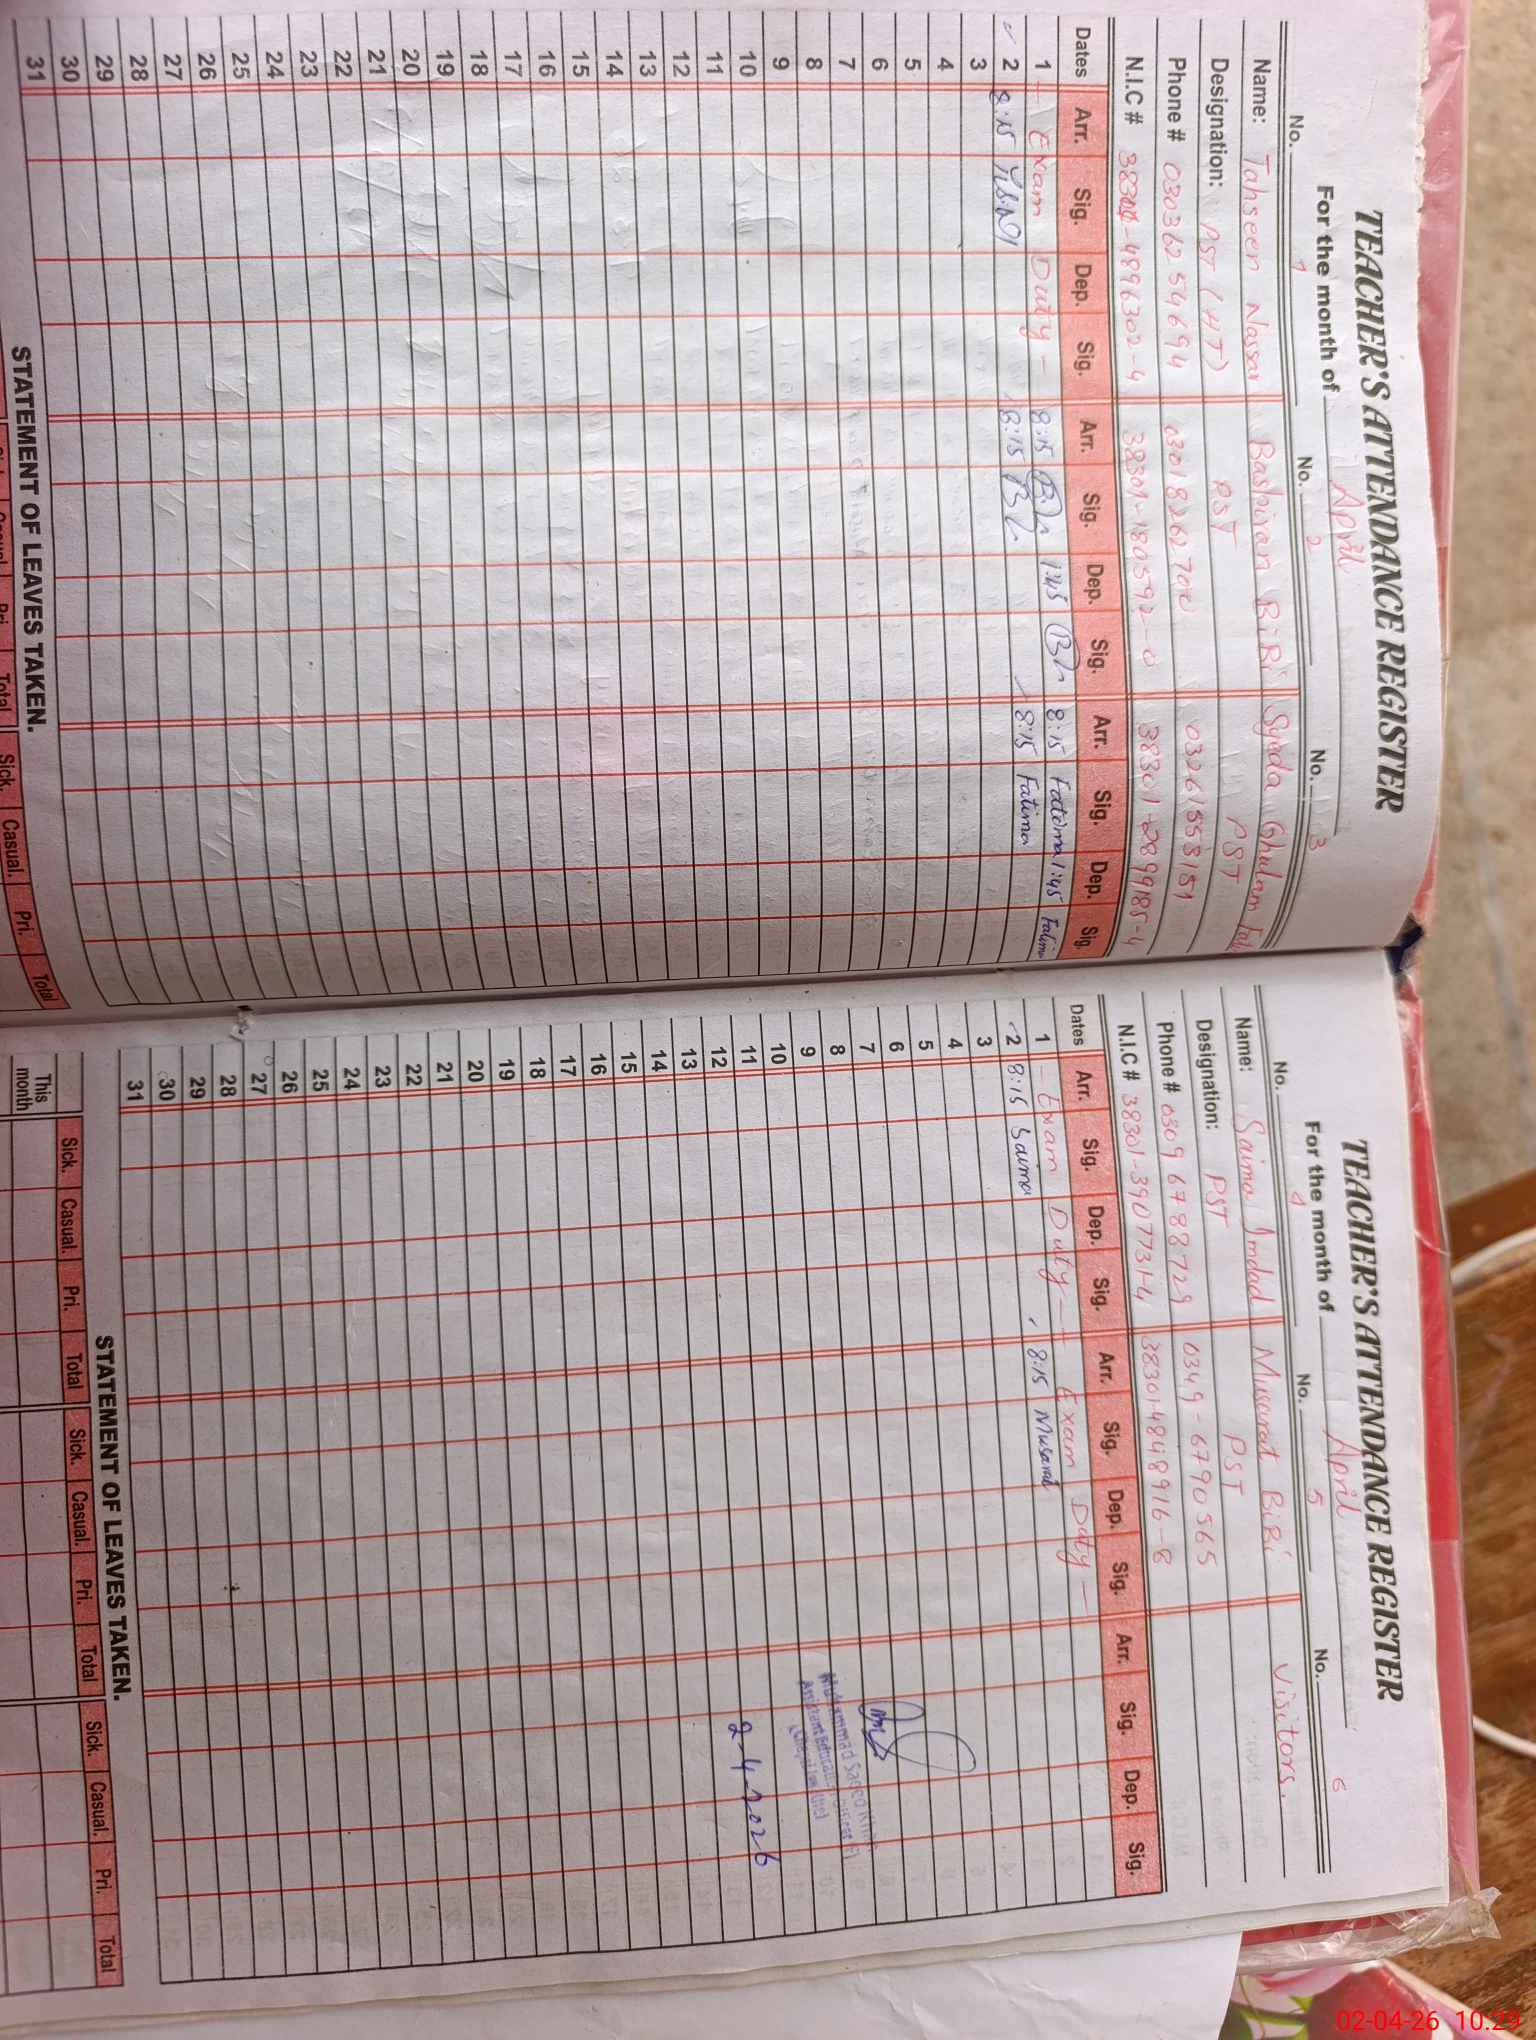 TEACHER'S ATTENDANCE REGISTER
For the month of April
No. 1 No. 2 No. 3
Name: Tahseen Nassar Bashiran BiBi Syeda Ghulam
Designation: PST (HT) PST PST
Phone # 03036254694 03261553151
N.I.C # 38301-1805792-0 38301-2899185-4
Dates Arr. Sig. Dep. Sig. Arr. Sig. Dep. Sig. Arr. Sig. Dep. Sig.
1 - Exam Duty - 8:15 1:45 8:15 Fatima 1:45 Fatima
2 8:15 8:15 8:15 Fatima
3
4
5
6
7
8
9
10
11
12
13
14
15
16
17
18
19
20
21
22
23
24
25
26
27
28
29
30
31
STATEMENT OF LEAVES TAKEN.
Total Sick. Casual. Pri. Total
TEACHER'S ATTENDANCE REGISTER
For the month of April
No. 4 No. 5 No. 6
Name: Saima Imdad Musarat BiBi Visitors.
Designation: PST PST
Phone # 03096788729 0349-6790565
N.I.C # 38301-3907731-4 38301-4848916-8
Dates Arr. Sig. Dep. Sig. Arr. Sig. Dep. Sig. Arr. Sig. Dep. Sig.
1 - Exam Duty - - Exam Duty -
2 8:15 Saima 8:15 Musarat
3
4
5
6
7
8 Muhammad Saeed
9 Assistant Education Officer
10
11 2-4-2026
12
13
14
15
16
17
18
19
20
21
22
23
24
25
26
27
28
29
30
31
STATEMENT OF LEAVES TAKEN.
Sick. Casual. Pri. Total Sick. Casual. Pri. Total Sick. Casual. Pri. Total
This month
02-04-26 10:29